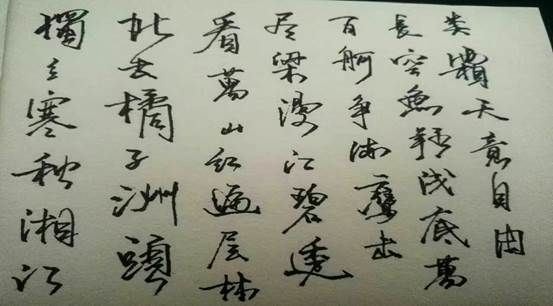 獨立寒秋湘江
北去橘子洲頭
看萬山红遍层林
尽染漫江碧透
百舸争流鹰击
長空魚翔浅底萬
类霜天竞自由